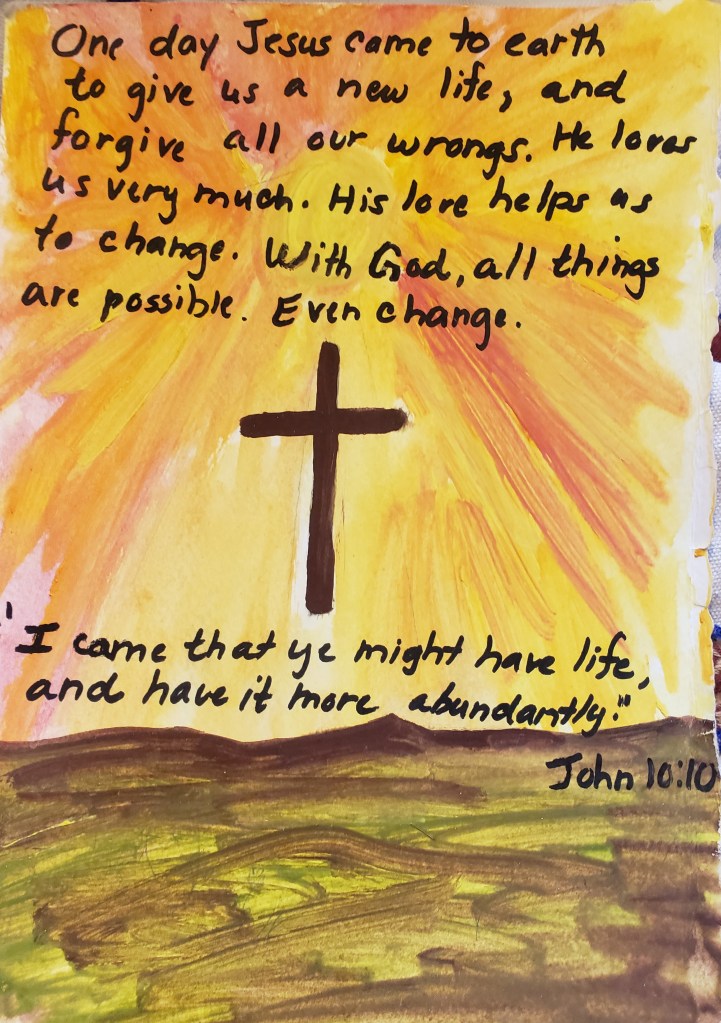 One day Jesus came to earth
to give us a new life, and
forgive all our wrongs. He loves
us very much. His love helps us
to change. With God, all things
are possible. Even change.
"I came that ye might have life,
and have it more abundantly."
John 10:10